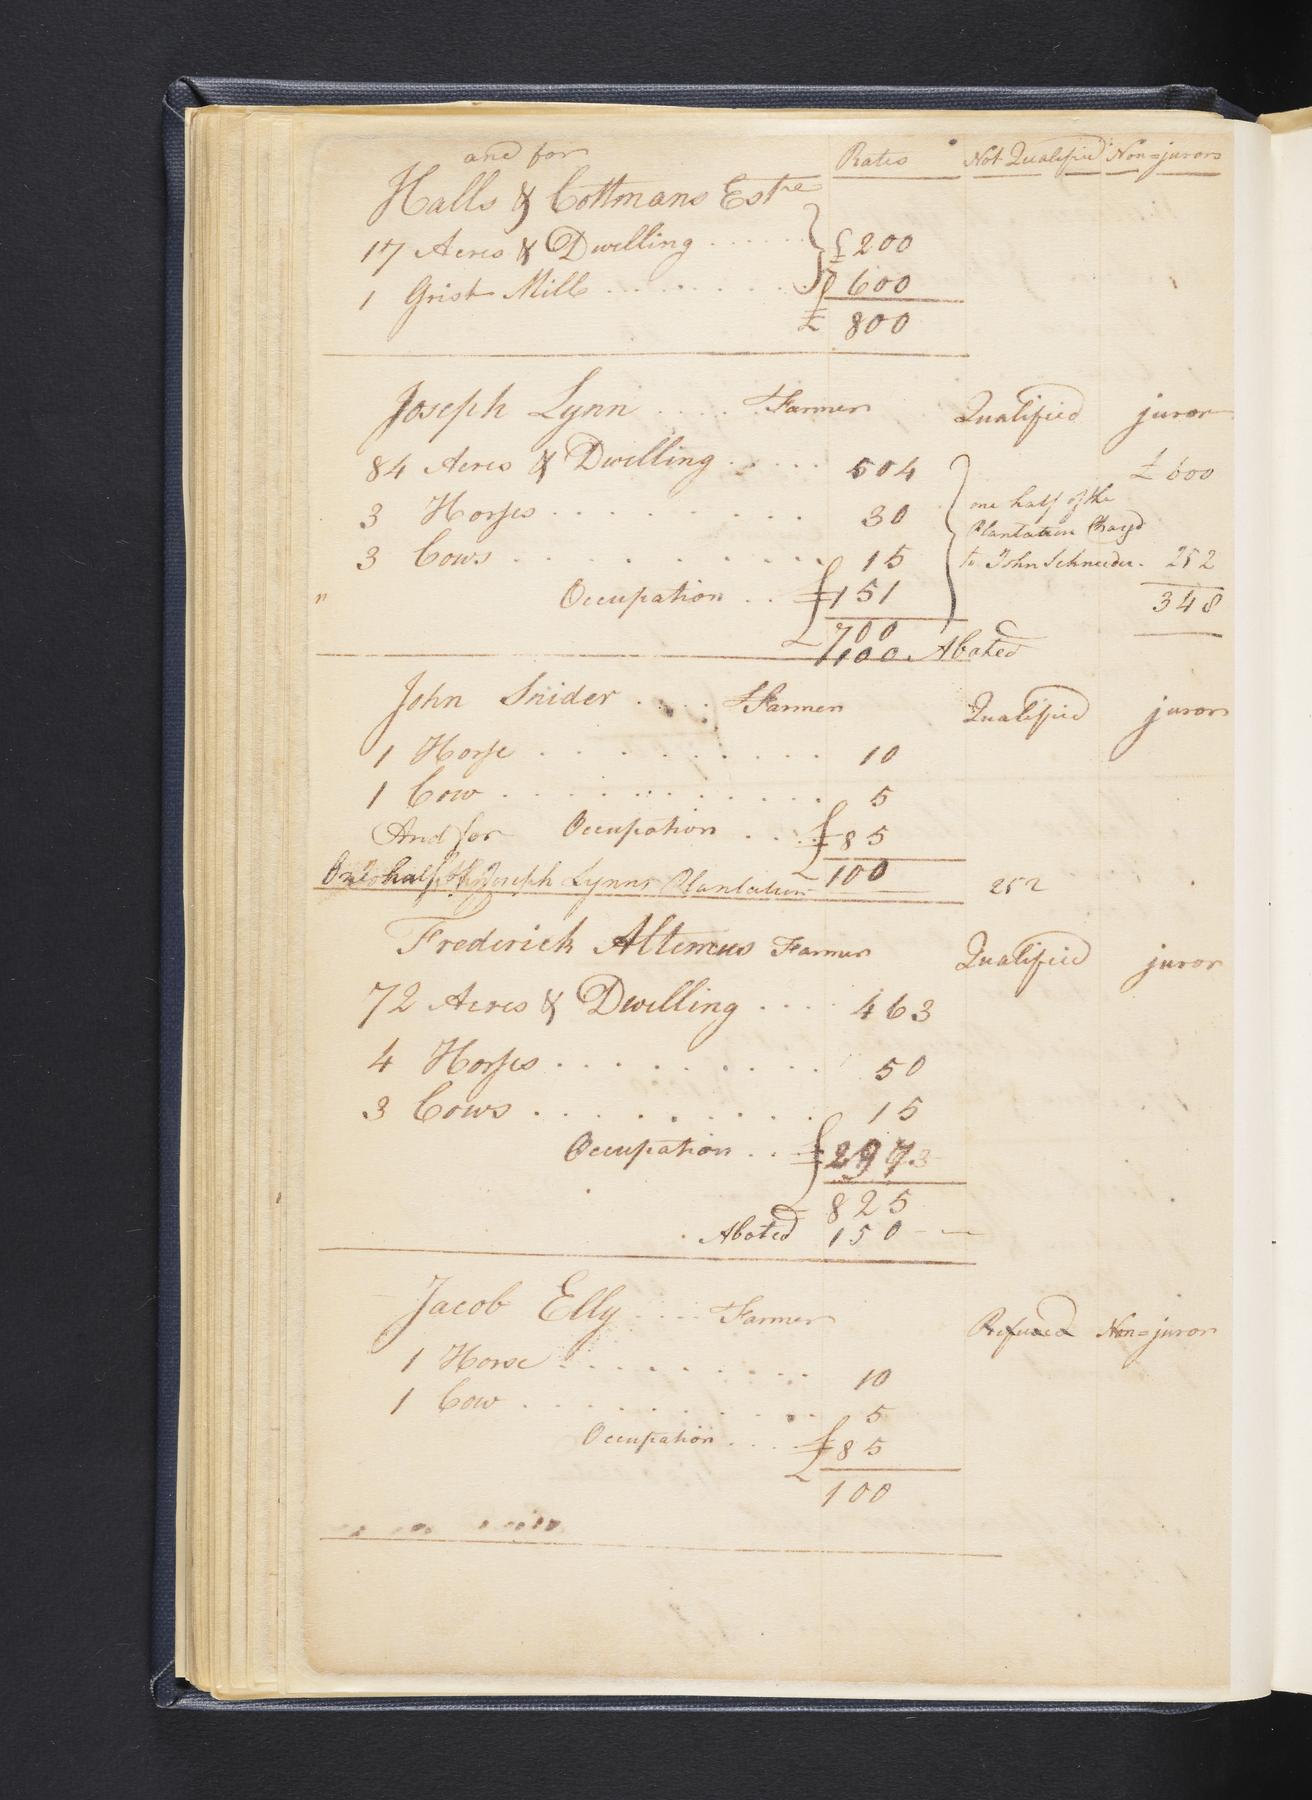 and for Rates Not Qualified Non=jurors
Halls & Cottmans Estte
17 Acres & Dwelling ...... £ 200
1 Grist Mill ......... 600
£ 800
Joseph Lynn .... Farmer Qualified juror
84 Acres & Dwelling ..... 504 £ 600
3 Horses ......... 30 one half of the
Plantation Chargd
3 Cows ......... 15 to John Schneeder. 252
" Occupation .. 151 348
£ 700
100. Abated
John Snider .... Farmer Qualified juror
1 Horse ......... 10
1 Cow ......... 5
And for Occupation ... 85
One half of Joseph Lynns Plantation £ 100 252
Frederick Altemus Farmer Qualified juror
72 Acres & Dwelling .... 463
4 Horses ......... 50
3 Cows ......... 15
Occupation ... 297
£ 825
Abated 150
Jacob Elly .... Farmer Refused Non=juror
1 Horse ......... 10
1 Cow ......... 5
Occupation .... 85
£ 100